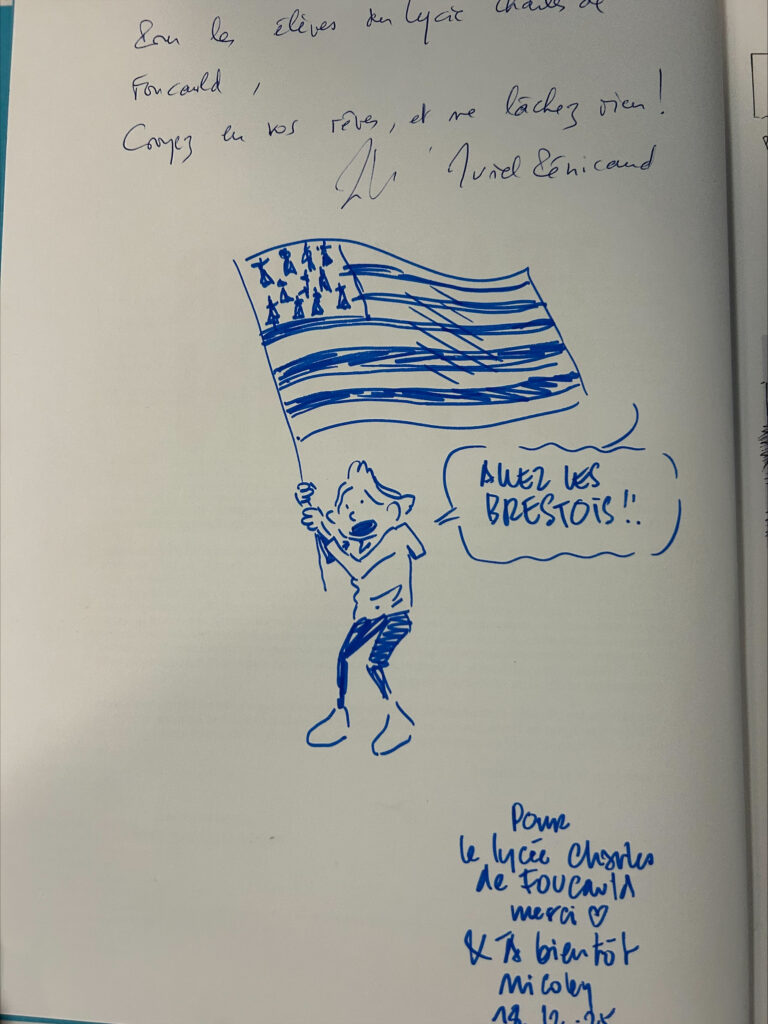 Pour les élèves du lycée Charles de
Foucauld,
Croyez en vos rêves, et ne lâchez rien !
Muriel Pénicaud
ALLEZ LES
BRESTOIS !!
Pour
le lycée Charles
de Foucauld
merci ♡
& à bientôt
Nicoby
18.12.25